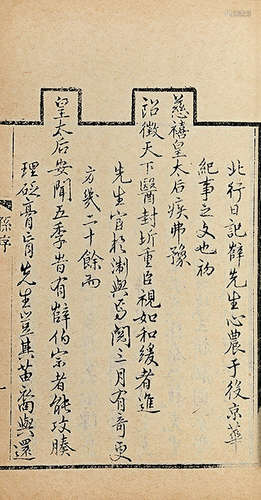 北行日記薛先生心農于役京華
紀事之文也初
慈禧皇太后疾弗豫
詔徵天下醫封圻重臣視如和緩者進
先生官於淛與焉閱三月有奇更
方幾二十餘而
皇太后安聞五季旹有薛伯宗者能攻腠
理砭膏肓先生豈其苗裔與還
孫序